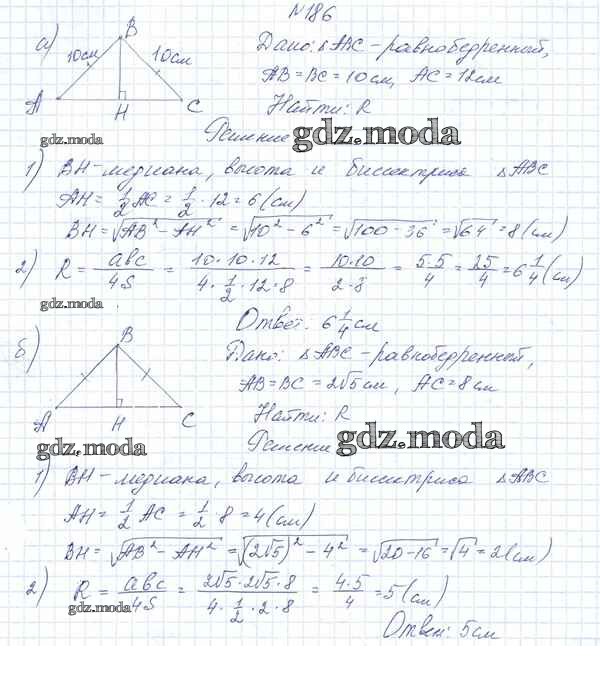 №186
а)
B
10см 10см
A H C
Дано: △ABC – равнобедренный,
AB = BC = 10 см, AC = 12 см
Найти: R
gdz.moda
Решение gdz.moda
1) BH – медиана, высота и биссектриса △ABC
AH = 1/2 AC = 1/2 · 12 = 6 (см)
BH = √(AB² – AH²) = √(10² – 6²) = √(100 – 36) = √64 = 8 (см)
2) R = abc/4S = (10 · 10 · 12)/(4 · 1/2 · 12 · 8) = (10·10)/(2·8) = (5·5)/4 = 25/4 = 6 1/4 (см)
gdz.moda
Ответ: 6 1/4 см
б)
B
A H C
Дано: △ABC – равнобедренный,
AB = BC = 2√5 см, AC = 8 см
Найти: R
gdz.moda
Решение gdz.moda
1) BH – медиана, высота и биссектриса △ABC
AH = 1/2 AC = 1/2 · 8 = 4 (см)
BH = √(AB² – AH²) = √((2√5)² – 4²) = √(20 – 16) = √4 = 2 (см)
2) R = abc/4S = (2√5 · 2√5 · 8)/(4 · 1/2 · 2 · 8) = (4·5)/4 = 5 (см)
gdz.moda
Ответ: 5 см